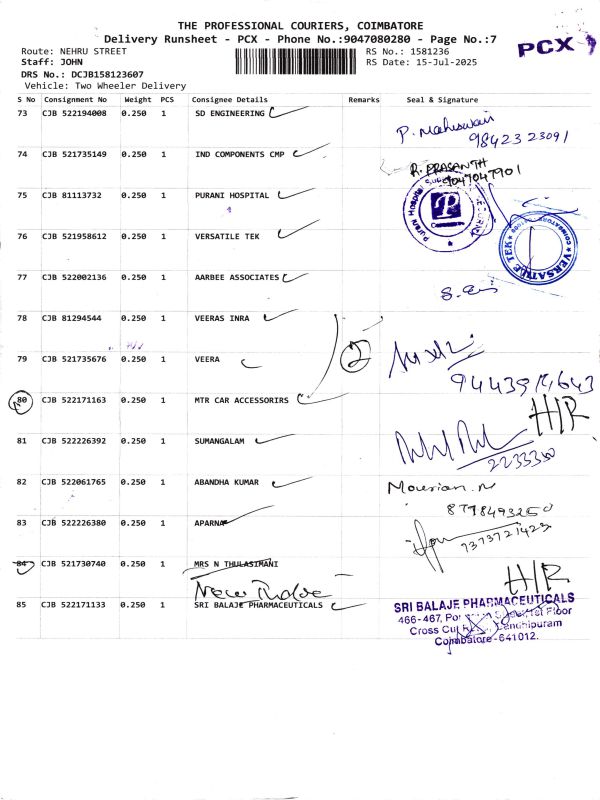 THE PROFESSIONAL COURIERS, COIMBATORE
Delivery Runsheet - PCX - Phone No.:9047080280 - Page No.:7
PCX
Route: NEHRU STREET
RS No.: 1581236
Staff: JOHN
RS Date: 15-Jul-2025
DRS No.: DCJB158123607
Vehicle: Two Wheeler Delivery
S No Consignment No Weight PCS Consignee Details Remarks Seal & Signature
73 CJB 522194008 0.250 1 SD ENGINEERING
P. Maheswari
98423 23091
74 CJB 521735149 0.250 1 IND COMPONENTS CMP
R. PRASANTH
9047047901
75 CJB 81113732 0.250 1 PURANI HOSPITAL
76 CJB 521958612 0.250 1 VERSATILE TEK
VERSATILE TEK
77 CJB 522002136 0.250 1 AARBEE ASSOCIATES
78 CJB 81294544 0.250 1 VEERAS INRA
2
79 CJB 521735676 0.250 1 VEERA
80 CJB 522171163 0.250 1 MTR CAR ACCESSORIRS
H/R
81 CJB 522226392 0.250 1 SUMANGALAM
82 CJB 522061765 0.250 1 ABANDHA KUMAR
83 CJB 522226380 0.250 1 APARNA
7373721423
84 CJB 521730740 0.250 1 MRS N THULASIMANI
H/R
85 CJB 522171133 0.250 1 SRI BALAJE PHARMACEUTICALS
SRI BALAJE PHARMACEUTICALS
466-467, 1st Floor
Cross Cut Gandhipuram
Coimbatore-641012.